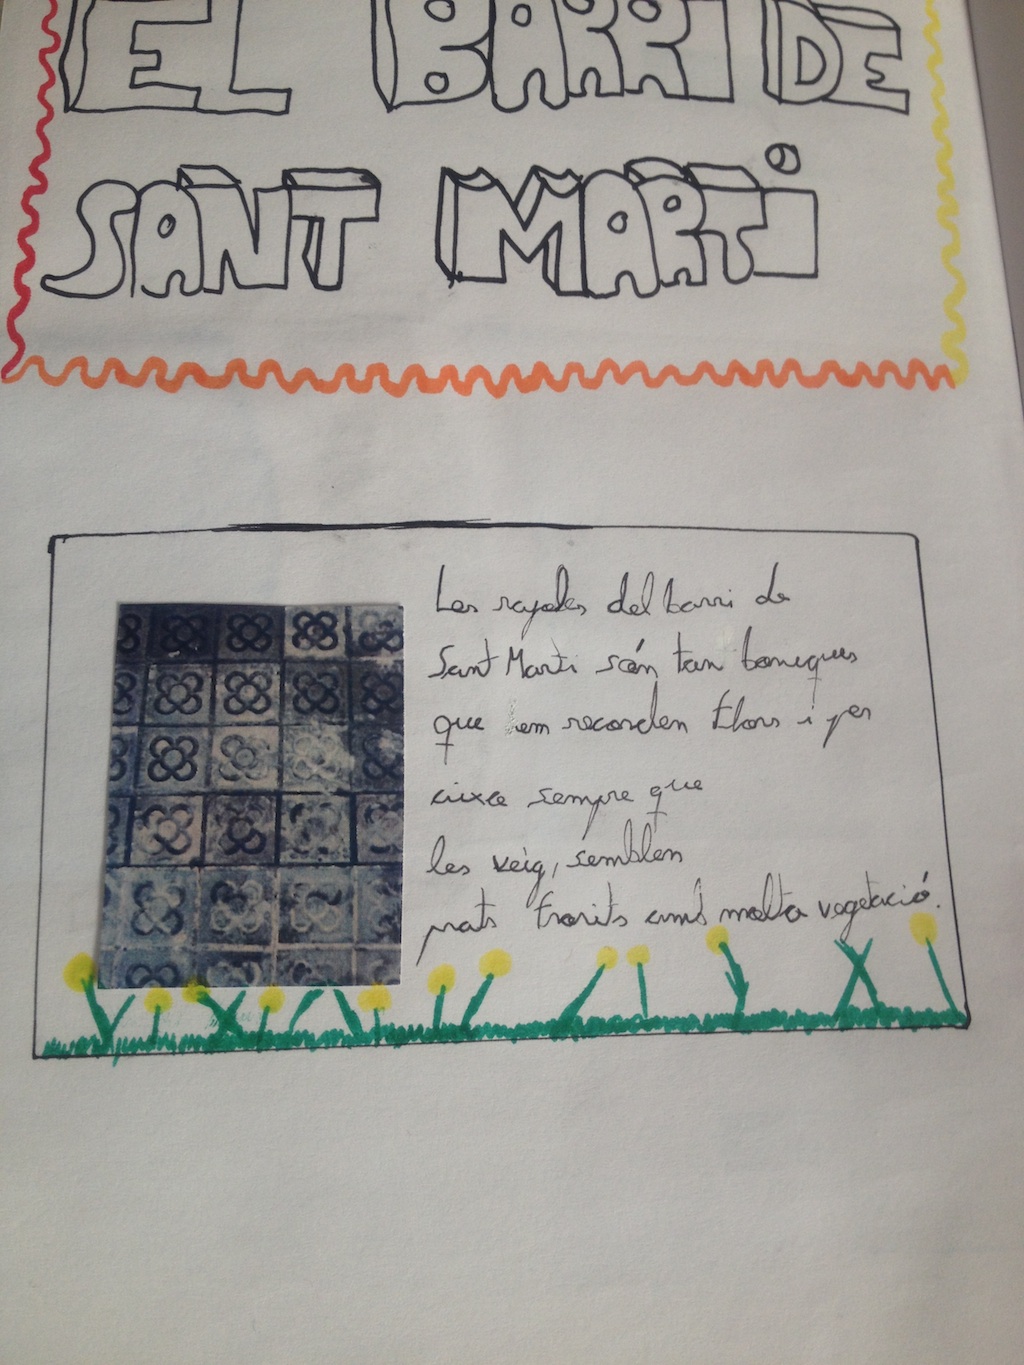 EL BARRI DE
SANT MARTI
Les rajoles del barri de
Sant Marti són tan boniques
que em recorden flors i per
aixo sempre que
les veig, semblen
prats florits amb molta vegetació.